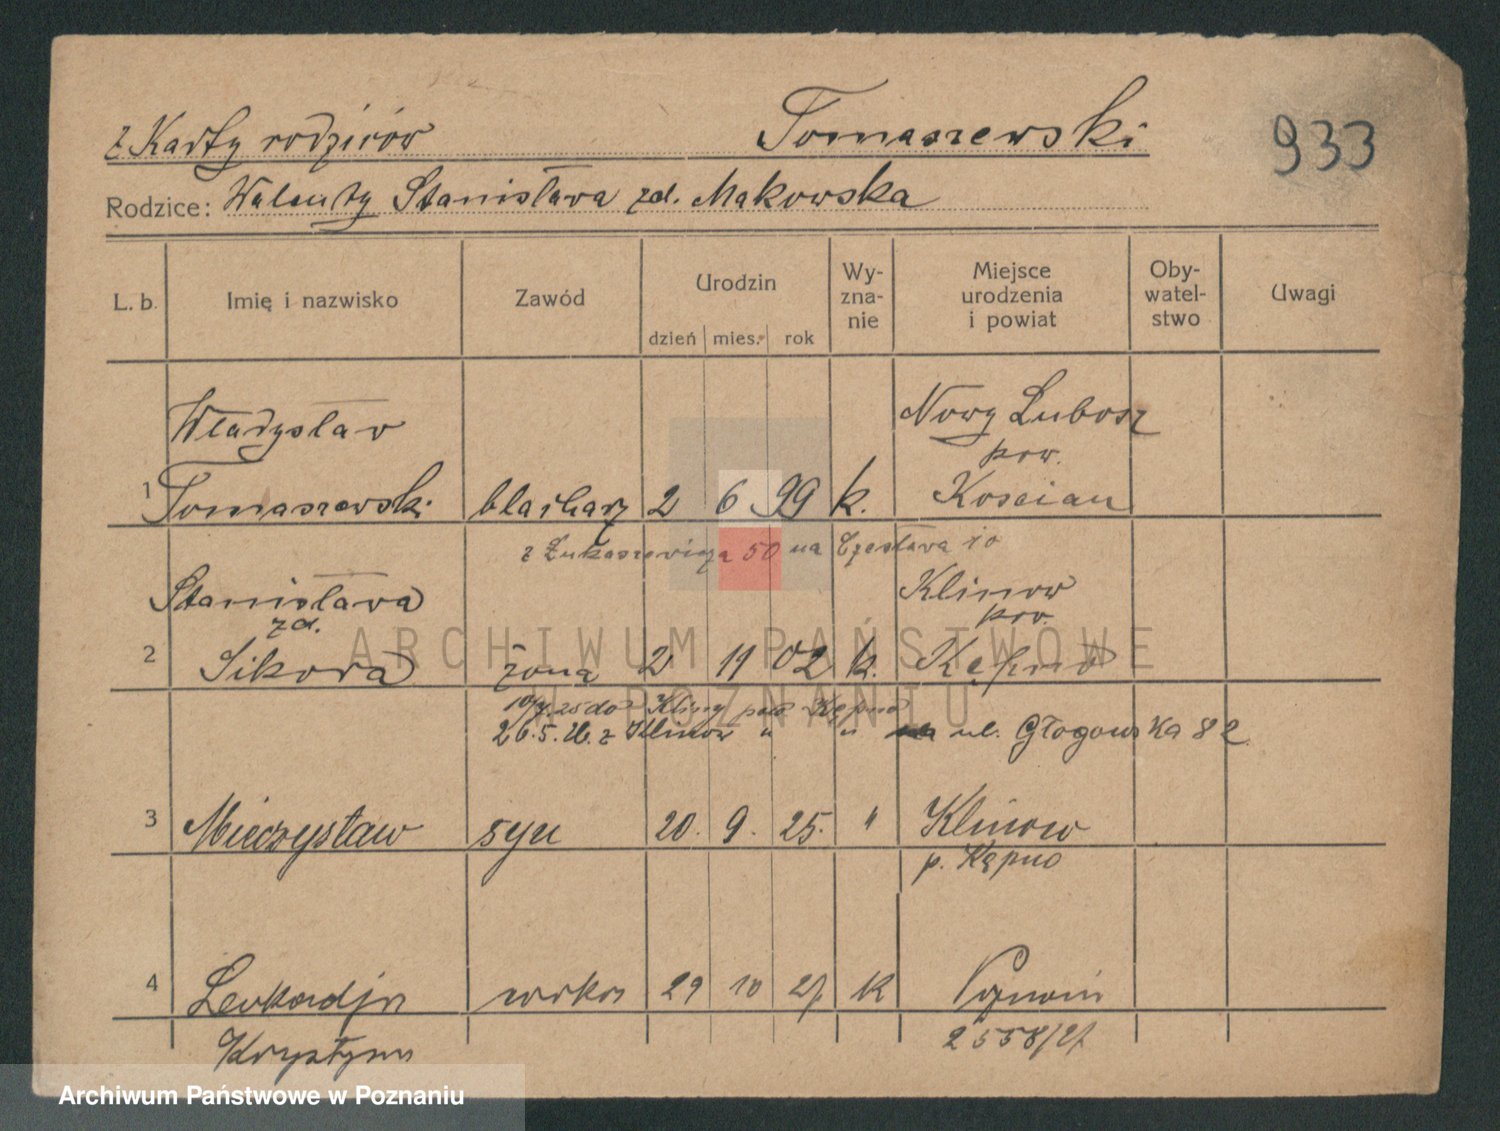 z Karty rodziców Tomaszewski 933
Rodzice: Walenty Stanisława zd. Makowska
L. b. Imię i nazwisko Zawód Urodzin dzień mies. rok Wy-zna-nie Miejsce urodzenia i powiat Oby-watel-stwo Uwagi
Władysław Nowy Lubosz
pow.
1 Tomaszewski blacharz 2 6 99 k. Koscian
z Łukaszewicza 50 na Czesława 10
Stanisława Klinow
zd. pow.
2 Sikora żona 2 11 02 k. Kępno
do Kliny pow Kępno
26.5.26. z Klinow " " ul. Głogowska 82
3 Mieczysław syn 20. 9. 25. " Klinow
p. Kępno
4 Leokadja córka 29 10 27 k Poznań
Krystyna 2558/27
ARCHIWUM PAŃSTWOWE
W POZNANIU
Archiwum Państwowe w Poznaniu